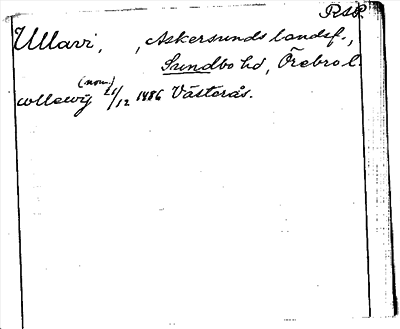 RAP.
Ullavi, , Askersunds landsf.,
Sundbo hd, Örebro l.
(nom.)
wllewij 21/12 1486 Västerås.